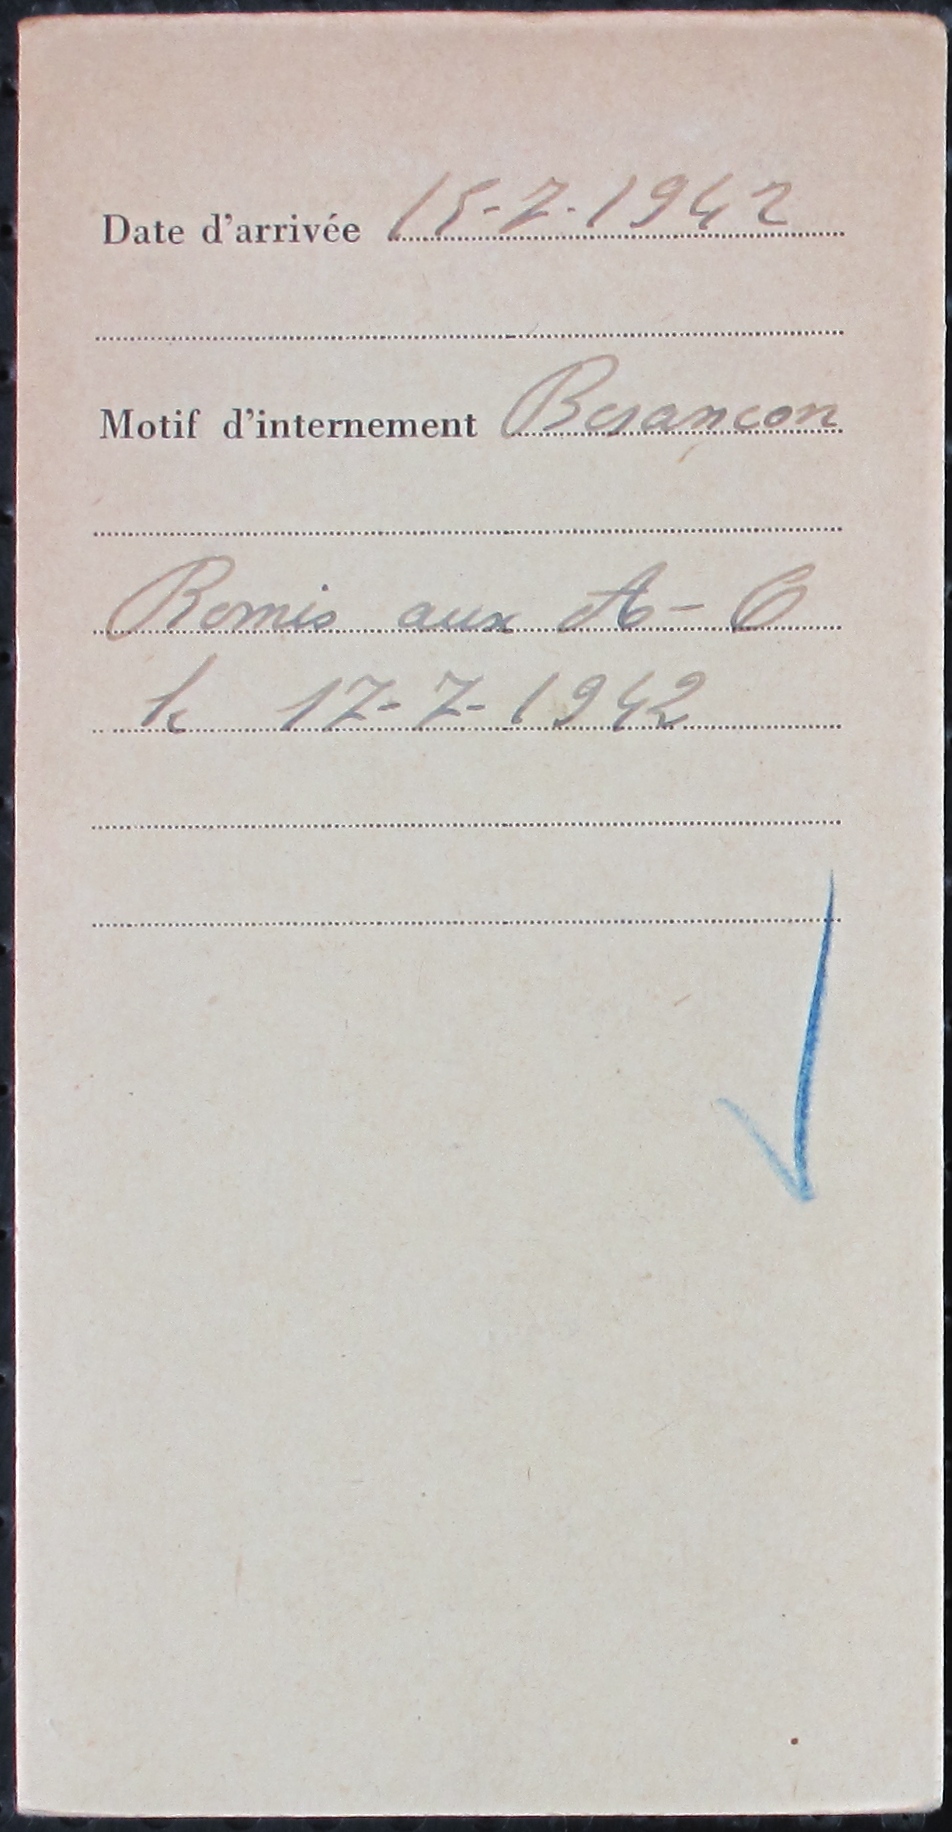 Date d'arrivée 15-7-1942
Motif d'internement Besançon
Remis aux A-O
le 17-7-1942